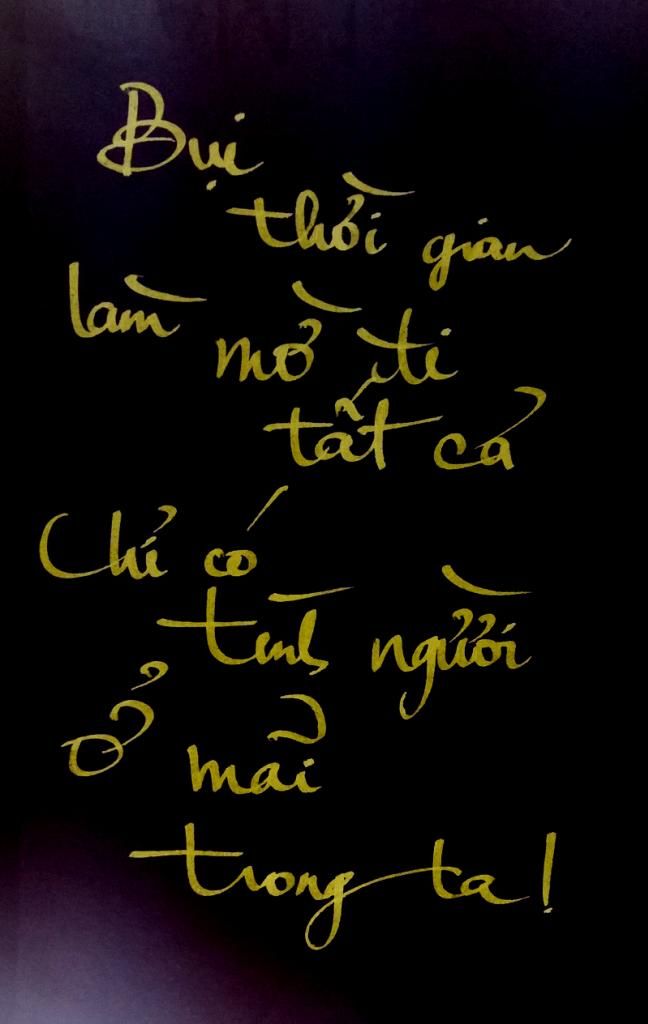 Bụi
thời gian
làm mờ đi
tất cả
Chỉ có
tình người
ở mãi
trong ta!